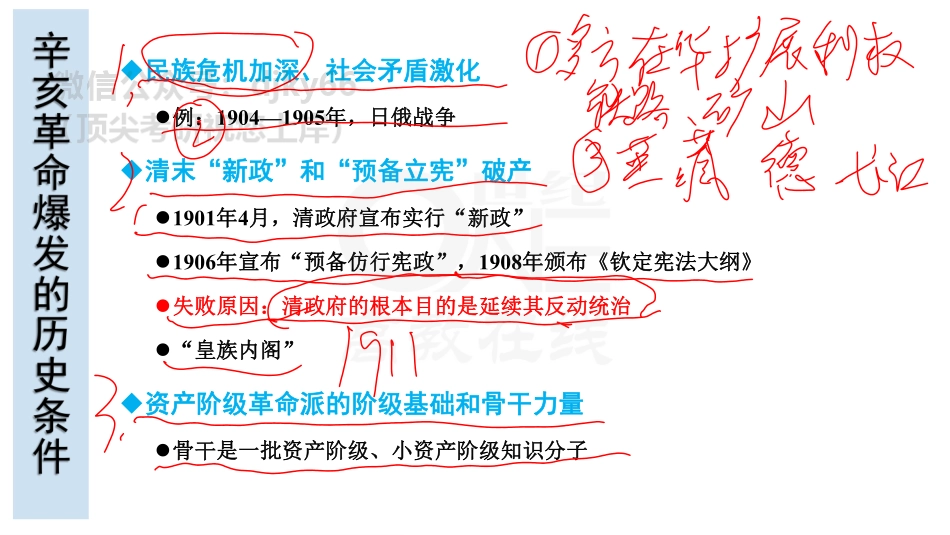 辛亥革命爆发的历史条件
1、
◆民族危机加深、社会矛盾激化
●例：1904—1905年，日俄战争
②
2、
◆清末“新政”和“预备立宪”破产
●1901年4月，清政府宣布实行“新政”
●1906年宣布“预备仿行宪政”，1908年颁布《钦定宪法大纲》
●失败原因：清政府的根本目的是延续其反动统治
●“皇族内阁”
1911
3、
◆资产阶级革命派的阶级基础和骨干力量
●骨干是一批资产阶级、小资产阶级知识分子
①多方在华扩展利权
铁路、矿山
③英 藏 德 长江